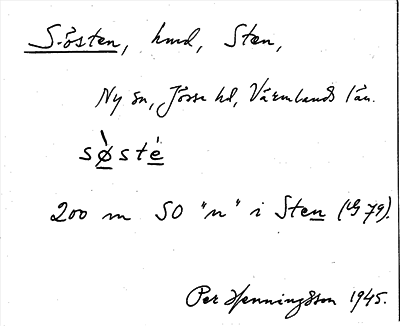 S. östen, hmd, Sten,
Ny sn, Jösse hd, Värmlands län.
sø̀sté
200 m SO "n" i Sten (G 79).
Per Henningsson 1945.